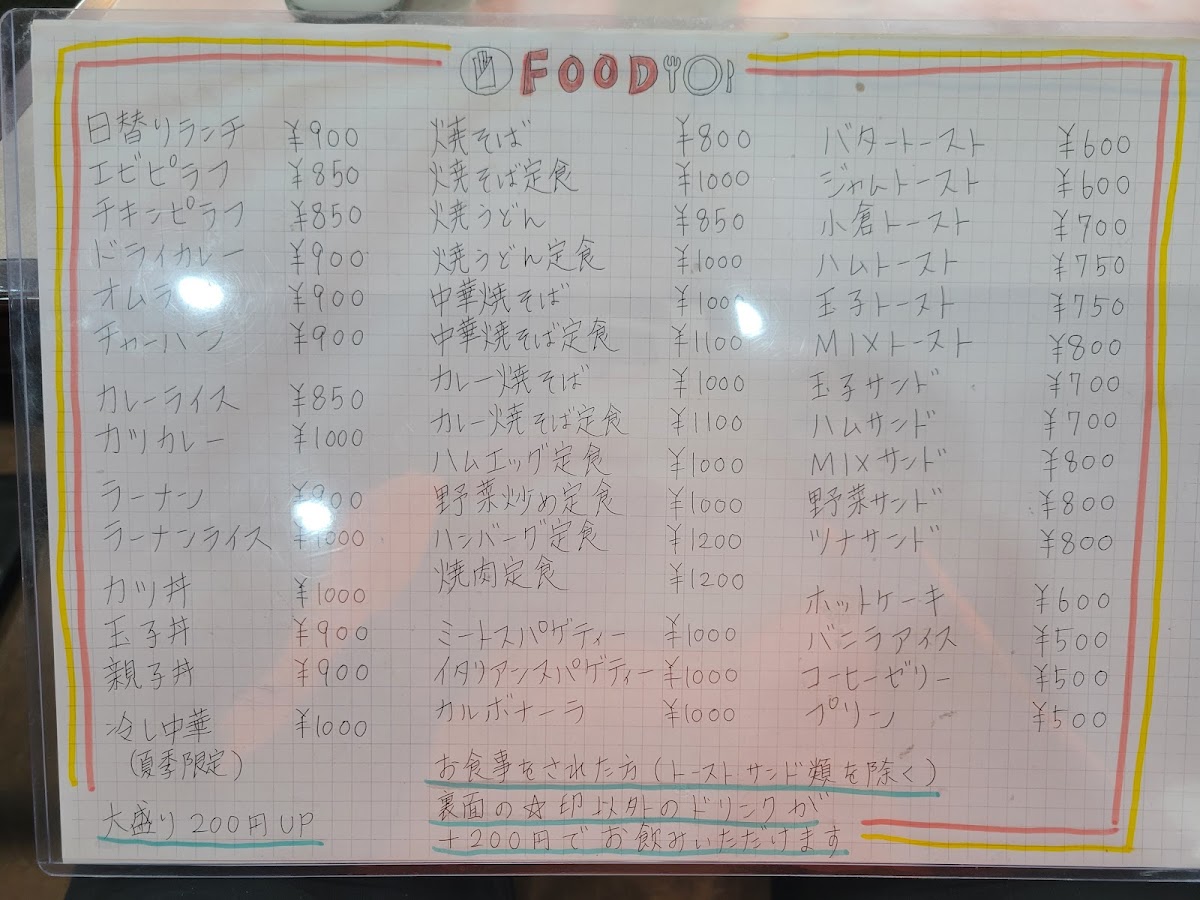 FOOD
日替りランチ ¥900
エビピラフ ¥850
チキンピラフ ¥850
ドライカレー ¥900
オムラ ¥900
チャーハン ¥900
カレーライス ¥850
カツカレー ¥1000
ラーメン ¥900
ラーメンライス ¥1000
カツ丼 ¥1000
玉子丼 ¥900
親子丼 ¥900
冷し中華 ¥1000
(夏季限定)
大盛り 200円UP
焼そば ¥800
焼そば定食 ¥1000
焼うどん ¥850
焼うどん定食 ¥1000
中華焼そば ¥1000
中華焼そば定食 ¥1100
カレー焼そば ¥1000
カレー焼そば定食 ¥1100
ハムエッグ定食 ¥1000
野菜炒め定食 ¥1000
ハンバーグ定食 ¥1200
焼肉定食 ¥1200
ミートスパゲティー ¥1000
イタリアンスパゲティー ¥1000
カルボナーラ ¥1000
バタートースト ¥600
ジャムトースト ¥600
小倉トースト ¥700
ハムトースト ¥750
玉子トースト ¥750
MIXトースト ¥800
玉子サンド ¥700
ハムサンド ¥700
MIXサンド ¥800
野菜サンド ¥800
ツナサンド ¥800
ホットケーキ ¥600
バニラアイス ¥500
コーヒーゼリー ¥500
プリン ¥500
お食事をされた方(トーストサンド類を除く)
裏面の☆印以外のドリンクが
+200円でお飲みいただけます